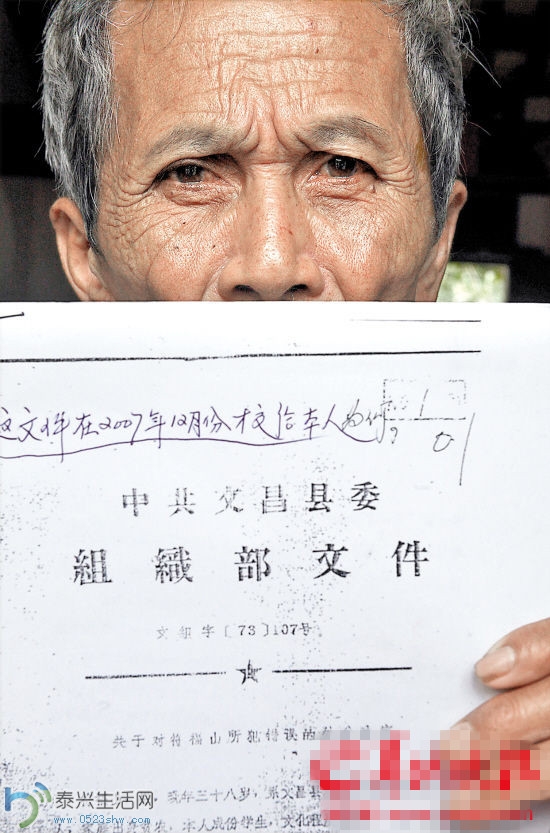 这文件在2007年12月份才交给本人为何?
中共文昌县委
組織部文件
文组字〔73〕107号
关于对符福山所犯错误的
现年三十八岁,系文昌县
本人成份学生,文化程
泰兴生活网
www.0523shw.com